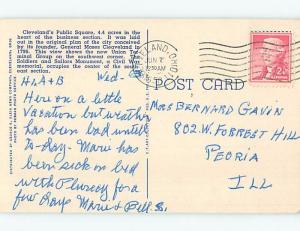 Cleveland's Public Square, 4.4 acres in the
heart of the business section. It was laid
out in original plan of the city conceived
by its founder, General Moses Cleaveland in
1796. This view shows the new Union Ter-
minal Group on the southwest corner. The
Soldiers and Sailors Monument, a Civil War
memorial, occupies the center of the south-
east section.
CLEVELAND, OHIO
JUN 7
12:30 AM
2¢
POST CARD
H, A & B Wed-
Here on a little
Vacation but weather
has been bad until
to-day. Marie has
been sick in bed
with Pleurisy for a
few days Marie & Bill
Mrs Bernard Gavin
802 W. Forrest Hill
Peoria
Ill